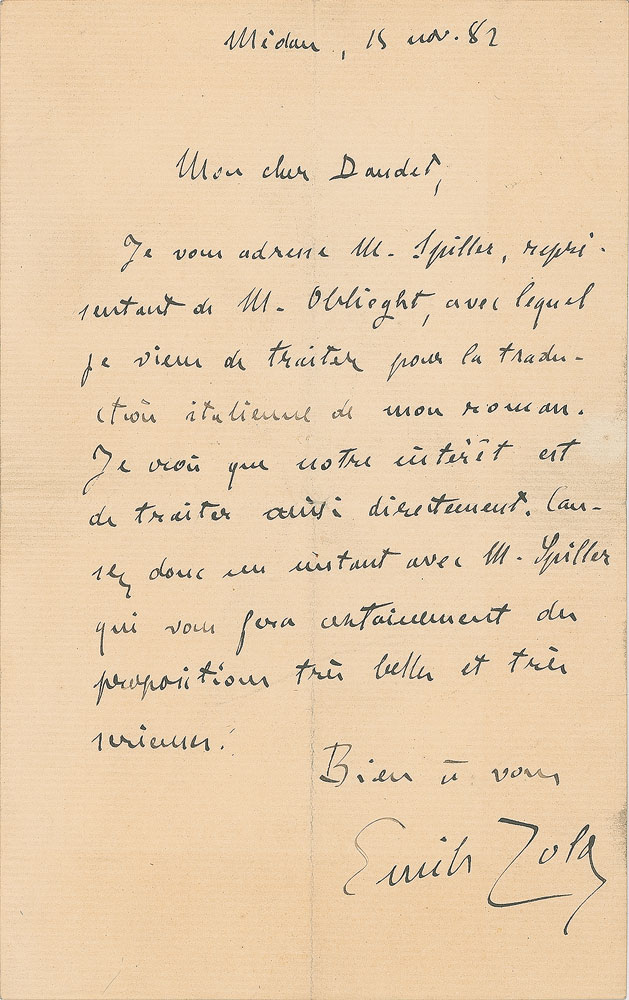 Médan, 15 nov. 82
Mon cher Daudet,
Je vous adresse M. Spiller, repré-
sentant de M. Oblieght, avec lequel
je viens de traiter pour la tradu-
ction italienne de mon roman.
Je crois que notre intérêt est
de traiter ainsi directement. Cau-
sez donc un instant avec M. Spiller
qui vous fera certainement des
propositions très belles et très
sérieuses.
Bien à vous
Emile Zola